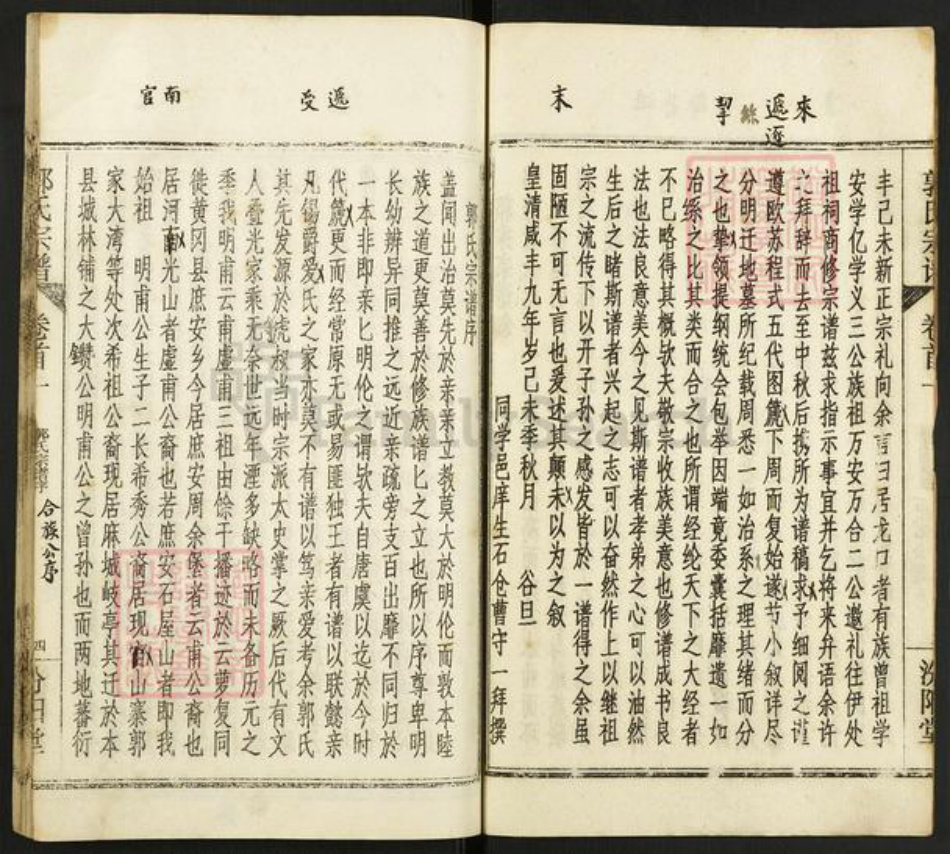 來
遞
逐
絲
挈
末
丰己未新正宗礼向余言曰居龙口者有族曾祖学
安学亿学义三公族祖万安万合二公邀礼往伊处
祖祠商修宗谱兹求指示事宜并乞将来弁语余许
之拜辞而去至中秋后携所为谱稿求予细阅之谨
遵欧苏程式五代图篾下周而复始遂芍小叙详尽
分明迁地墓所纪载周悉一如治系之理其绪而分
之也挚领提纲统会包举因端竟委囊括靡遗一如
治丝之比其类而合之也所谓经纶天下之大经者
不已略得其概欤夫敬宗收族美意也修谱成书良
法也法良意美今之见斯谱者孝弟之心可以油然
生后之睹斯谱者兴起之志可以奋然作上以继祖
宗之流传下以开子孙之感发皆於一谱得之余虽
固陋不可无言也爰述其颠未以为之叙
皇清咸丰九年岁己未季秋月 谷旦
同学邑庠生石仓曹守一拜撰
遞
受
南
官
郭氏宗谱序
盖闻出治莫先於亲亲立教莫大於明伦而敦本睦
族之道更莫善於修族谱匕之立也所以序尊卑明
长幼辨异同推之远近亲疏旁支百出靡不同归於
一本非即亲匕明伦之谓欤夫自唐虞以迄於今时
代篾更而经常原无或易匪独王者有谱以联懿亲
凡锡爵爱氏之家亦莫不有谱以笃亲爱考余郭氏
其先发源於虎叔当时宗派太史掌之厥后代有文
人叠光家乘无奈世远年湮多缺略而未备历元之
季我明甫云甫虚甫三祖由馀干播迹於云萝复同
徙黄冈县庶安乡今居庶安周余堡者云甫公裔也
居河南光山者虚甫公裔也若庶安石屋山者即我
始祖 明甫公生子二长希秀公裔居现官山寨郭
家大湾等处次希祖公裔现居麻城岐亭其迁於本
县城林铺之大鑽公明甫公之曾孙也而两地蕃衍
郭氏宗谱
卷首一
郭氏宗谱序
合族公序
四
汾阳堂